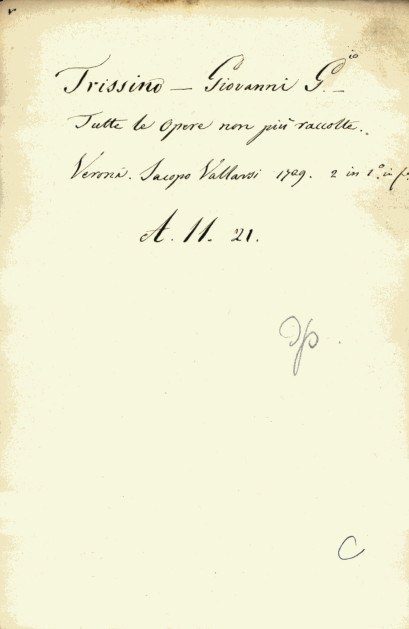 Trissino — Giovanni G.io —
Tutte le Opere non più raccolte..
Verona. Jacopo Vallarsi 1729. 2 in 1.º in f.
A. 11. 21.
C